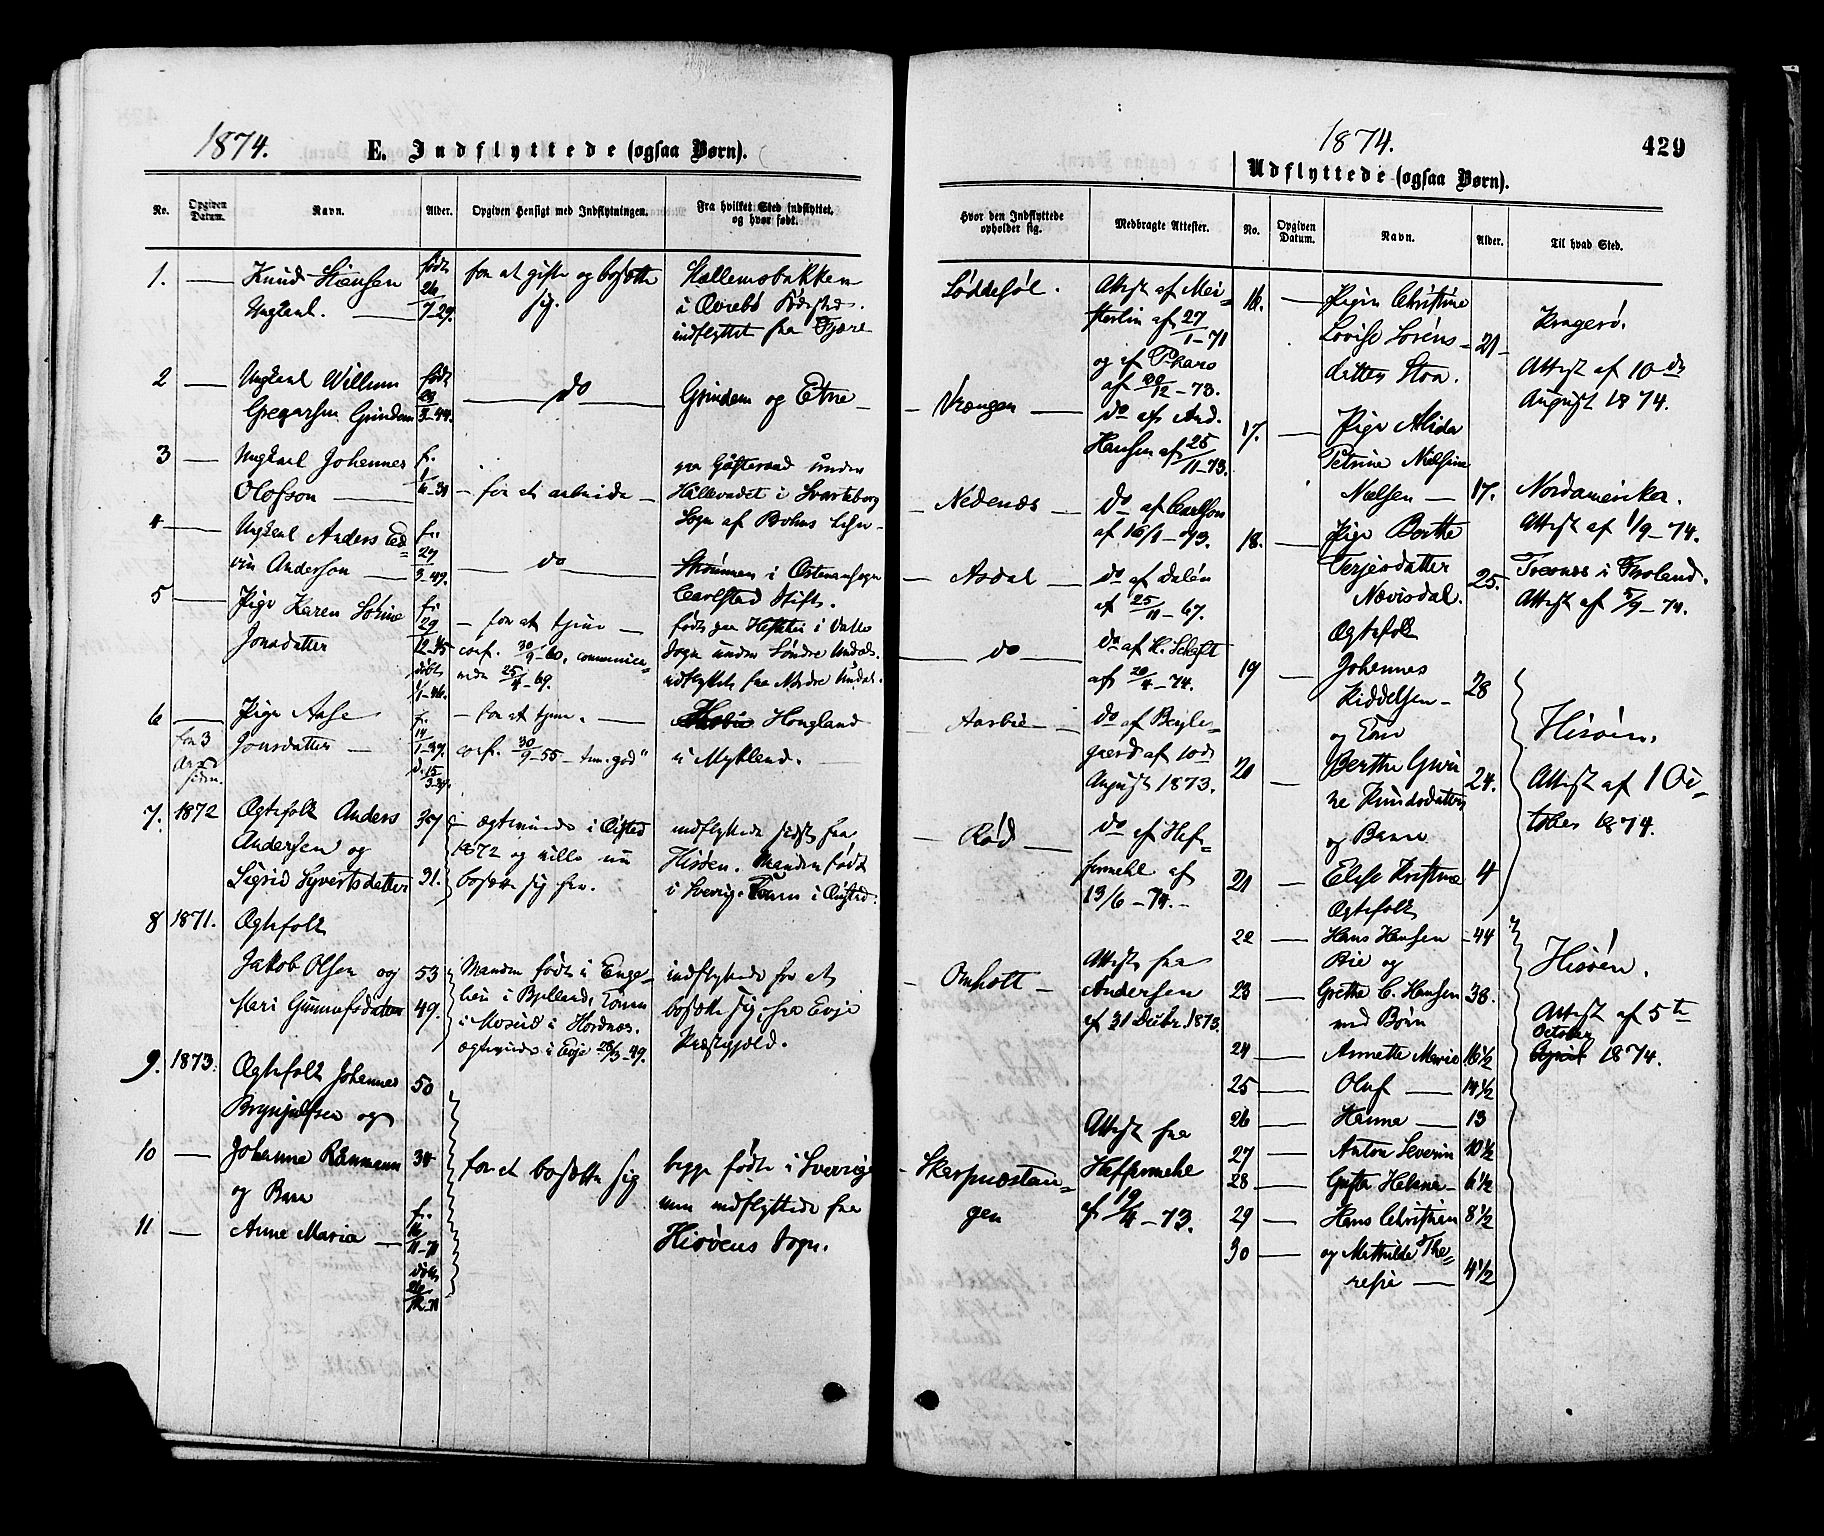 1874.
E. Indflyttede (ogsaa Børn).
No.
Opgiven Datum.
Navn.
Alder.
Opgiven Hensigt med Indflytningen.
Fra hvilket Sted indflyttet, og hvor født.
1.
Knud Hansen
Ungkarl.
født
26/7-29.
for at gifte og bosætte
sig.
i Øvrebø Fødested.
indflyttet fra
2
Ungkarl Willum
Gregersen Grindem
født
3-44.
do
Grindem og Etne
3
Ungkarl Johannes
Olofson
f.
for at arbeide
paa under
i Svarteborg
Sogn af Bohus Lehn
4
Ungkarl Anders Ed-
vin Anderson
f.
27/3-49.
do
Strømmen i
Carlstad Stift.
5
Pige Karen Sørine
Jonsdatter
f.
29/12-45
døbt
1/1-46.
for at tjene
conf. 30/9-60, communice-
rede 25/4-69.
født paa i
Sogn under Søndre Undal.
indflyttet fra Nordre Undal.
6
for 3
Ar
siden.
Pige Aase
Jonsdatter
f.
14/1-39.
d. 15/3-39.
for at tjene.
conf. 30/9-55 - "god"
Hougland
i Mykland.
7.
1872
Ægtefolk Anders
Andersen og
Sigrid Syvertsdatter
37
31.
ægteviede i Øiested
1872 og ville nu
bosætte sig her.
indflyttede sidst fra
Hisøen. Manden født
i Sverig. Konen i Øiested.
8
1871.
Ægtefolk
Jakob Olsen og
Mari Gunnufsdatter
53
49.
Manden født i Enge-
lien i Bjelland, Konen
i Mosud i Hordnes.
ægteviede i Evje 28/3-49.
indflyttede for at
bosætte sig, fra Evje
Præstegjeld.
9.
1873.
Ægtefolk Johannes
Brynjulfsen og
50
10
Johanne
og Barn
34
for at bosætte sig
begge fødte i Sverrige
men indflyttede fra
Hisøens Sogn.
11
Anne Maria
f.
16/11-71
døbt
26/12-71
1874.
429
Udflyttede (ogsaa Børn).
Hvor den Indflyttede opholder sig.
Medbragte Attester.
No.
Opgiven Datum.
Navn.
Alder.
Til hvad Sted.
Løddesøl.
Attest af Mei-
sterlin af 27/1-71
og af Pharo
af 30/12-73.
Vrængen
do af And.
Hansen af 25/11-73.
Nedenæs
do af Carlson
af 16/1-73.
Asdal
do af Dalén
af 25/11-67.
do
do af H. Schøft
af 20/4-74.
Aasbie
do af Beyle-
gaard af 10de
August 1873.
Rød
do af Hef-
fermehl af
13/6-74.
Omholt
Attest fra
Andersen
af 31 Decbr. 1873.
Skarpnæstan-
gen
Attest fra
Heffermehl
af 19/4-73.
16.
Pigen Christine
Lovise Sørens-
datter Stoa.
21
Kragerø.
Attest af 10de
August 1874.
17.
Pige Alida
Petrine Nielsine
Nielsen
17.
Nordamerika.
Attest af 1/9-74.
18.
Pige Berthe
Terjesdatter
Nævisdal.
25.
Trevnes i Froland.
Attest af 5/9-74.
19
Ægtefolk
Johannes
Kiddelsen
og Kone
28
20
Berthe Guri-
ne Knudsdatter
og Barn
24.
21
Elise Kristine
4
Hisøen.
Attest af 1 Oc-
tober 1874.
22
Ægtefolk
Hans Hansen
Bie og
44
23
Grethe C. Hansen
med Børn
38.
24
Annette Marie
16 1/2
25
Oluf
14 1/2
26
Hanne
13
27
Anton Severin
10 1/2
28
Gusta Helene
6 1/2
29
Hans Christian
8 1/2
30
og Mathilde The-
resie
4 1/2
Hisøen.
Attest af 5te
October
1874.